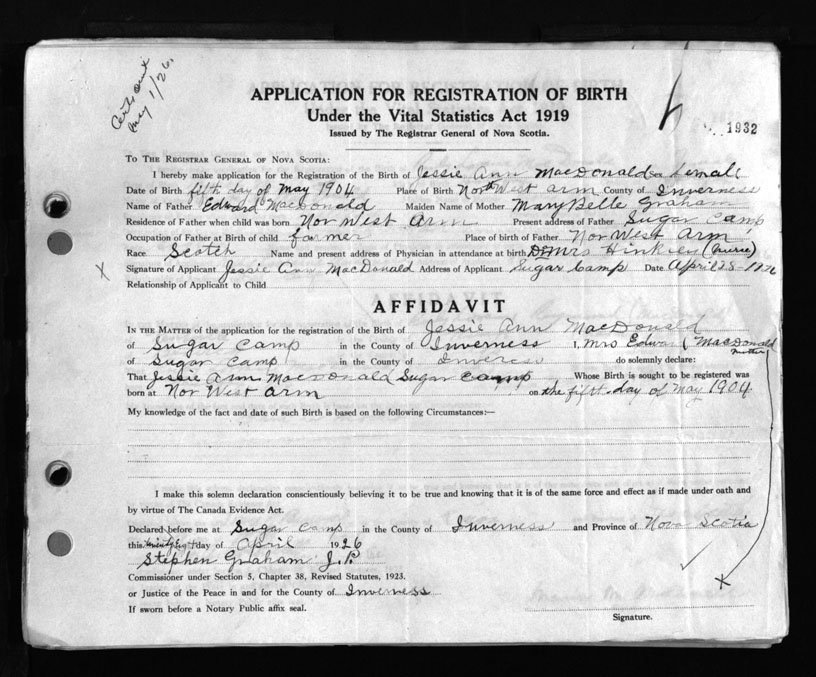 Cert sent
May 1/26.
APPLICATION FOR REGISTRATION OF BIRTH
Under the Vital Statistics Act 1919
Issued by The Registrar General of Nova Scotia.
1932
TO THE REGISTRAR GENERAL OF NOVA SCOTIA:
I hereby make application for the Registration of the Birth of Jessie Ann MacDonald Sex female
Date of Birth fifth day of May 1904 Place of Birth North West Arm County of Inverness
Name of Father Edward MacDonald Maiden Name of Mother Mary Belle Graham
Residence of Father when child was born Nor West Arm Present address of Father Sugar Camp
Occupation of Father at Birth of child farmer Place of birth of Father Nor West Arm
Race Scotch Name and present address of Physician in attendance at birth Mrs Hinkley (nurse)
X Signature of Applicant Jessie Ann MacDonald Address of Applicant Sugar Camp Date April 28-1926
Relationship of Applicant to Child
AFFIDAVIT
IN THE MATTER of the application for the registration of the Birth of Jessie Ann MacDonald
of Sugar Camp in the County of Inverness I, Mrs Edward MacDonald
mother
of Sugar Camp in the County of Inveress do solemnly declare:
That Jessie Ann MacDonald Sugar Camp Whose Birth is sought to be registered was
born at Nor West Arm on the fifth day of May 1904.
My knowledge of the fact and date of such Birth is based on the following Circumstances:—
I make this solemn declaration conscientiously believing it to be true and knowing that it is of the same force and effect as if made under oath and
by virtue of The Canada Evidence Act.
Declared before me at Sugar Camp in the County of Inverness and Province of Nova Scotia
this day of April 1926
Stephen Graham J.P.
Commissioner under Section 5, Chapter 38, Revised Statutes, 1923.
or Justice of the Peace in and for the County of Inverness
If sworn before a Notary Public affix seal.
X
Signature.